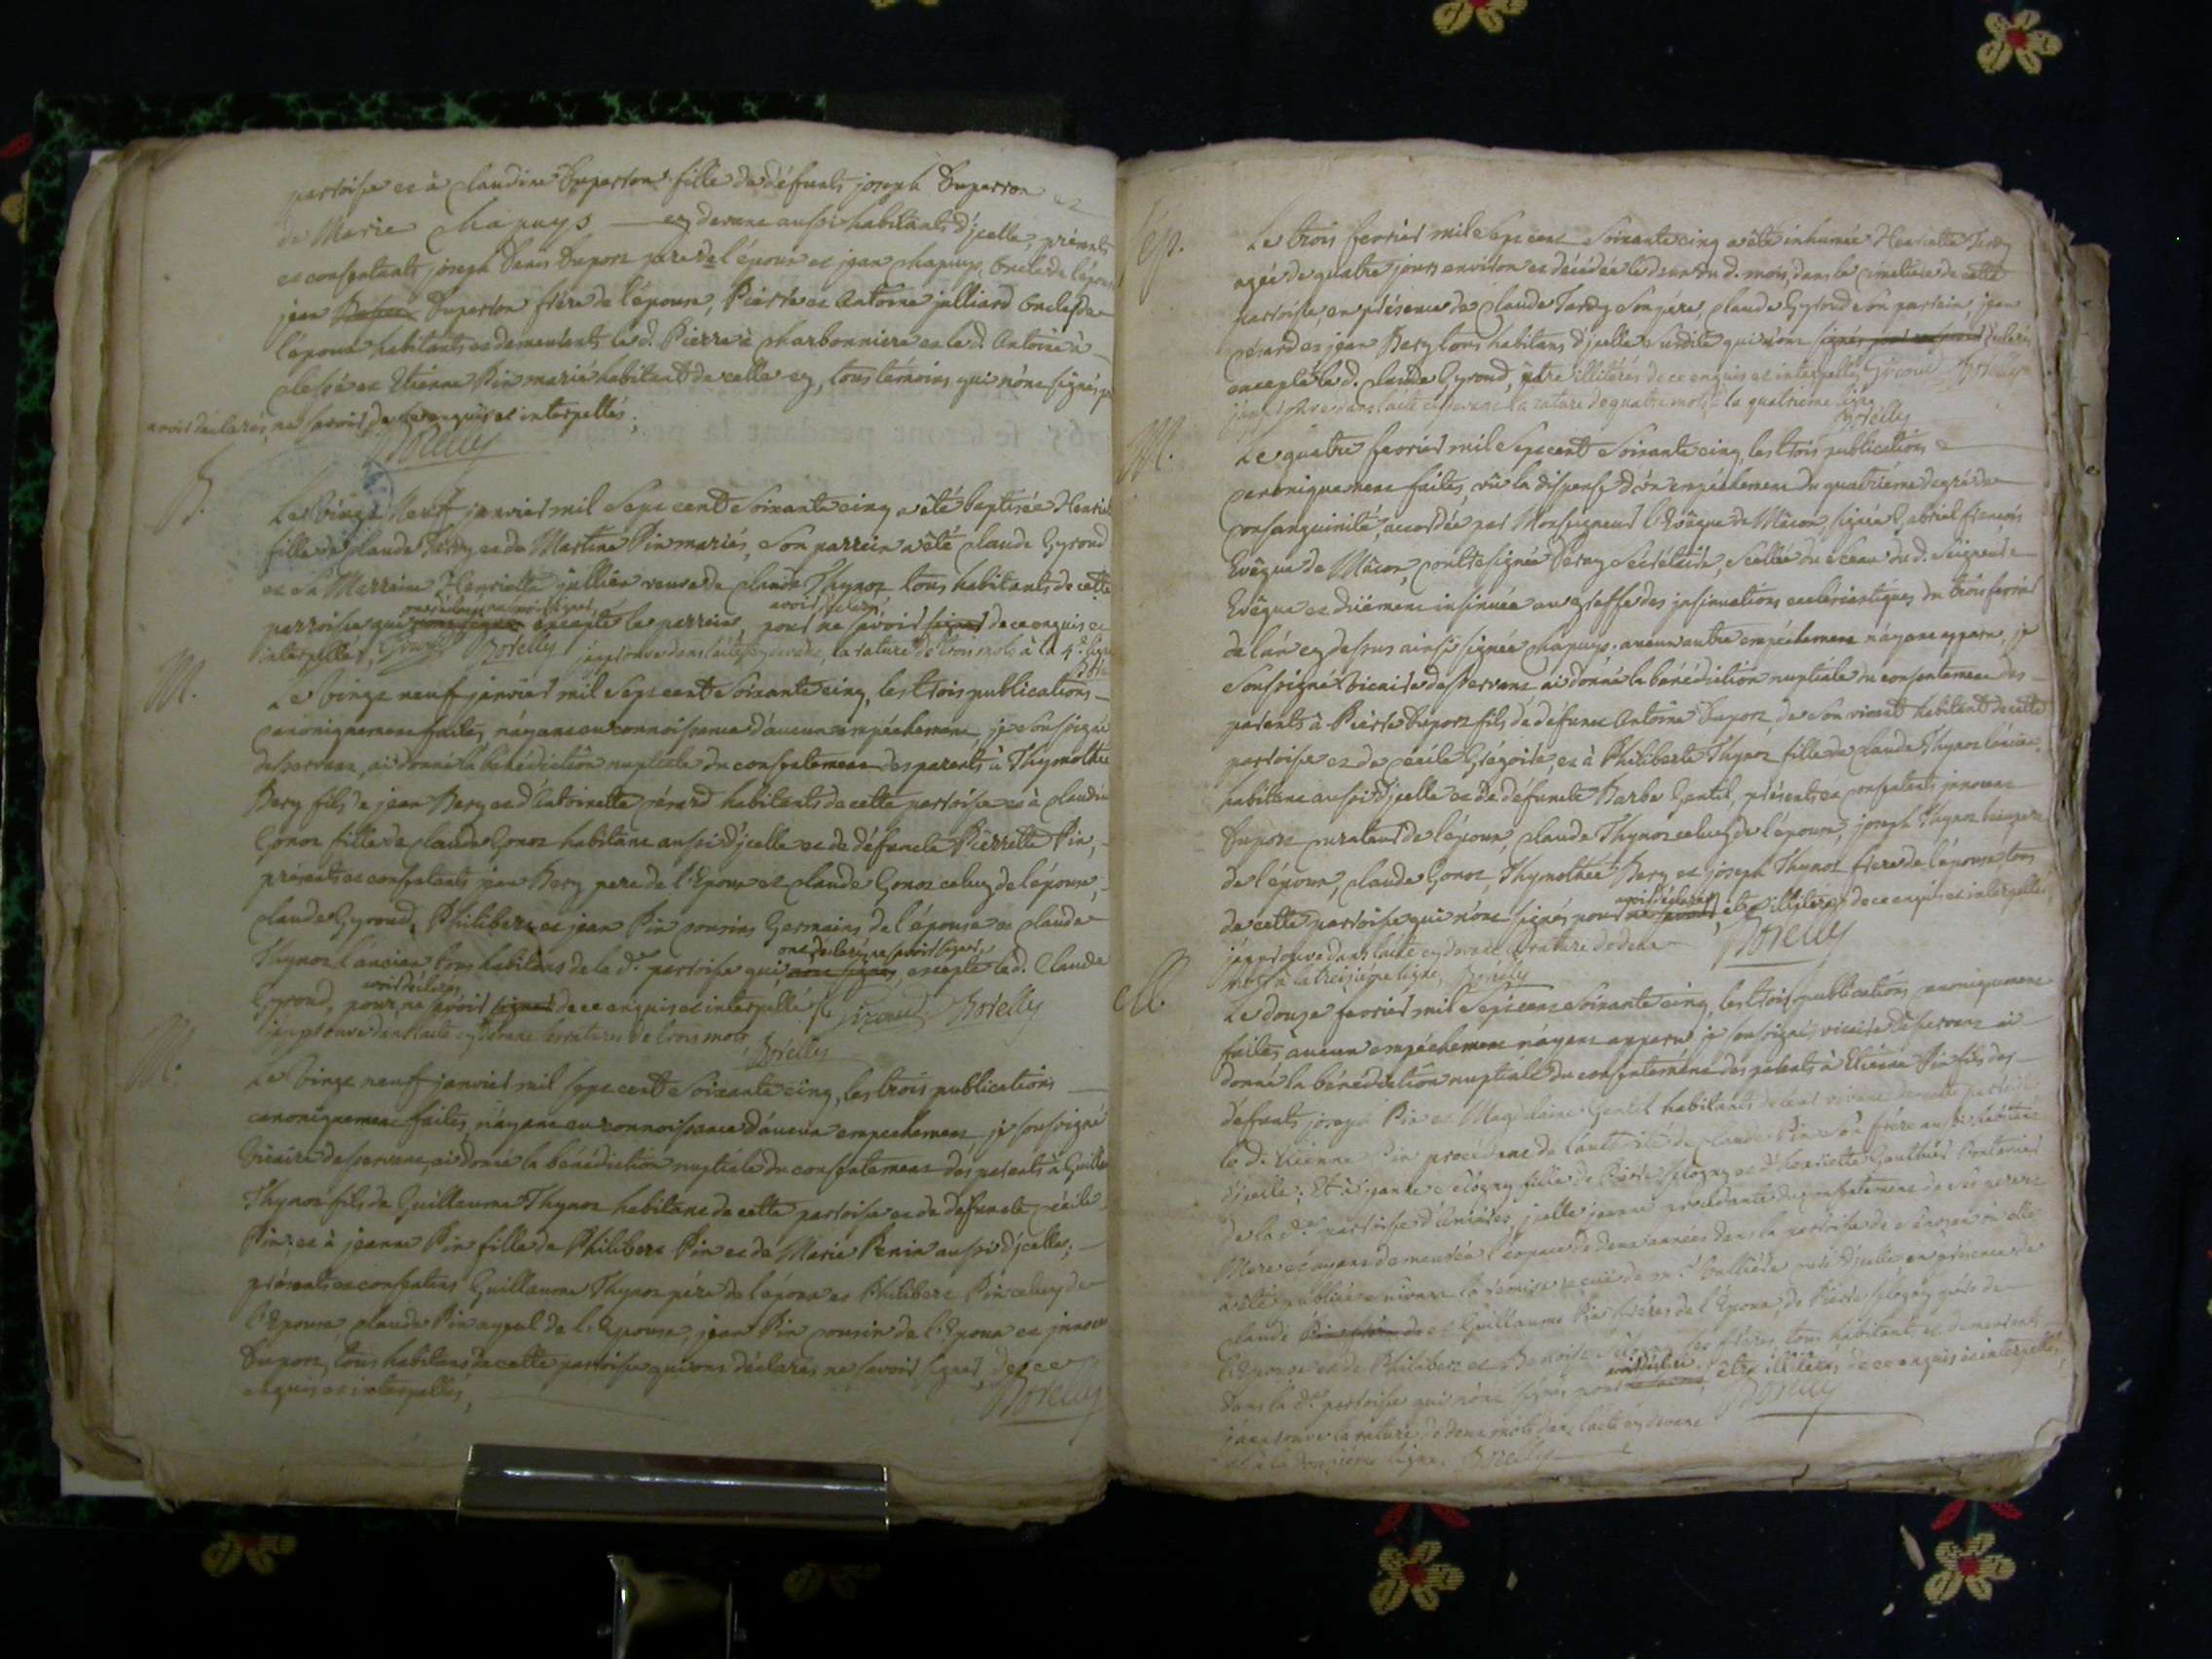 parroisse et à Claudine Duperron fille de défunts joseph Duperron et
de Marie Chapuys cy devant aussi habitants d'jcelle, présents
et consentants joseph Denis Duport pere de l'époux et jean Chapuys, Oncle de l'épouse
jean Duperron frère de l'épouse, Pierre et Antoine julliard Oncles de
l'époux habitants et demeurants le d. Pierre à Charbonniere et le d. Antoine à
Clessé et Etienne Pin marié habitant de celle cy, tous témoins qui n'ont signés pr
avoir déclarés ne savoir de ce enquis et interpellés.
Borelly
B.
Le Vingt Neuf janvier mil Sept cent Soixante cinq a été baptisée Henriette
fille de Claude Tardy et de Martine Pin mariés, Son parrein a été Claude Gyroud
et Sa Marreine Henriette jullien veuve de Claude Thynot tous habitants de cette
ont déclarés ne savoir signer avoir déclaré
parroisse qui n'ont signés excepté le parrein, pour ne savoir signer de ce enquis et
interpellés, Giroud Borelly japprouve dans l'acte cy devant, la rature de trois mots à la 4e. ligne
Borelly
M.
Le Vingt neuf janvier mil Sept cent Soixante cinq, les trois publications
canoniquement faites, n'ayant eu connoissance d'aucun empéchement, je Soussigné
desservant, ai donné la bénédiction nuptiale du consentement des parents à Thymothée
Bery fils de jean Bery et d'Antoinette Pérard habitants de cette parroisse et à Claudine
Gonot fille de Claude Gonot habitant aussi d'jcelle et de défuncte Pierrette Pin,
présents et consentants jean Bery pere de l'Epoux et Claude Gonot celuy de l'épouse,
Claude Gyroud, Philibert et jean Pin cousins Germains de l'épouse et Claude
ont déclarés ne savoir signer
Thynot l'ancien tous habitans de la de. parroisse qui n'ont signés, excepté le d. Claude
avoir déclarés
Gyroud, pour ne savoir signer de ce enquis et interpellés Giroud Borelly
japprouve dans l'acte cy devant les ratures de trois mots Borelly
M.
Le Vingt neuf janvier mil Sept cent Soixante cinq, les trois publications
canoniquement faites, n'ayant eu connoissance d'aucun empechement je soussigné
Vicaire desservant, ai donné la bénédiction nuptiale du consentement des parents à Guillaume
Thynot fils de Guillaume Thynot habitant de cette parroisse et de défuncte Cécile
Pin; et à jeanne Pin fille de Philibert Pin et de Marie Penin aussi d'jcelle;
présents et consentens Guillaume Thynot père de l'époux et Philibert Pin celuy de
l'Epouse Claude Pin ayeul de l'Epouse, jean Pin cousin de l'Epoux et jnnocent
Duport, tous habitans de cette parroisse qui ont déclarés ne savoir signer, de ce
enquis et interpellés, Borelly
Ep.
Le trois fevrier mil Sept cent Soixante cinq a été inhumée Henriette Tardy
agée de quatre jours environ et décédée le deux du d. mois, dans le cimetiere de cette
parroisse, en présence de Claude Tardy Son père, Claude Gyroud Son parrein, jean
Pérard et jean Bery tous habitans d'jcelle Susdite qui n'ont signés déclarés
excepté le d. Claude Gyroud, etre illitérés de ce enquis et interpellés Giroud Borelly
japprouve dans l'acte cy devant la rature de quatre mots à la quatrieme ligne
Borelly
M.
Le quatre fevrier mil Sept cent Soixante cinq, les trois publications
canoniquement faites, vû la dispense d'ún empéchement du quatriéme degré de
consanguinité, accordée par Monseigneur l'Evêque de Mâcon, signée Gabriel françois
Evêque de Mâcon, contresignée Secrétaire, Scellée du Sceau du d. Seigneur
Evêque et duëment insinuée au greffe des jnsinuations ecclesiastiques du trois fevrier
de l'an cy dessus ainsi signée Chapuys. aucun autre empéchement n'ayant apparu, je
Soussigné Vicaire desservant ai donné la bénédiction nuptiale du consentement des
parents à Pierre Duport fils de défunct Antoine Duport de Son vivant habitant de cette
parroisse et de Cécile Grégoire, et à Philiberte Thynot fille de Claude Thynot l'ancien
habitant aussi d'jcelle et de défuncte Barbe Gentil, présents et consentants jnnocent
Duport curateur de l'époux, Claude Thynot celuy de l'épouse, joseph Thynot beaupere
de l'époux, Claude Gonot, Thymothée Bery et joseph Thynot frere de l'épouse tous
avoir déclarés
de cette parroisse qui n'ont signés pour etre illitérés de ce enquis et interpellés
japprouve dans l'acte cy devant la rature de deux Borelly
mots à la treizieme ligne, Borelly
M.
Le douze fevrier mil Sept cent Soixante cinq, les trois publications canoniquement
faites, aucun empéchement n'ayant apparu je soussigné, vicaire desservant ai
donné la bénédiction nuptiale du consentement des parents à Etienne Pin fils des
défunts joseph Pin et Magdelaine Gentil habitants de leur vivant de cette parroisse
le d. Etienne Pin procédant de l'autorité de Claude Pin Son frère aussi habitant
d'jcelle; Et à jeanne fille de Pierre et d'henriette Gauthier
de la de. parroisse d'Ameires, jcelle jeanne procédante du consentement de Ses pere et
Mere et ayant demeurée l'espace de deux années dans la parroisse de où elle
a été publiée Suivant la remise curé d'jcelle en présence de
Claude et Guillaume Pin frères de l'Epoux, de Pierre père de
l'Epouse et de Philibert et Benoist Ses frères, tous habitants et demeurants
avoir déclaré
dans la de. parroisse qui n'ont signés pour etre illitérés, de ce enquis et interpellés,
japprouve la rature de deux mots dans l'acte cy devant Borelly
à la douzieme ligne. Borelly